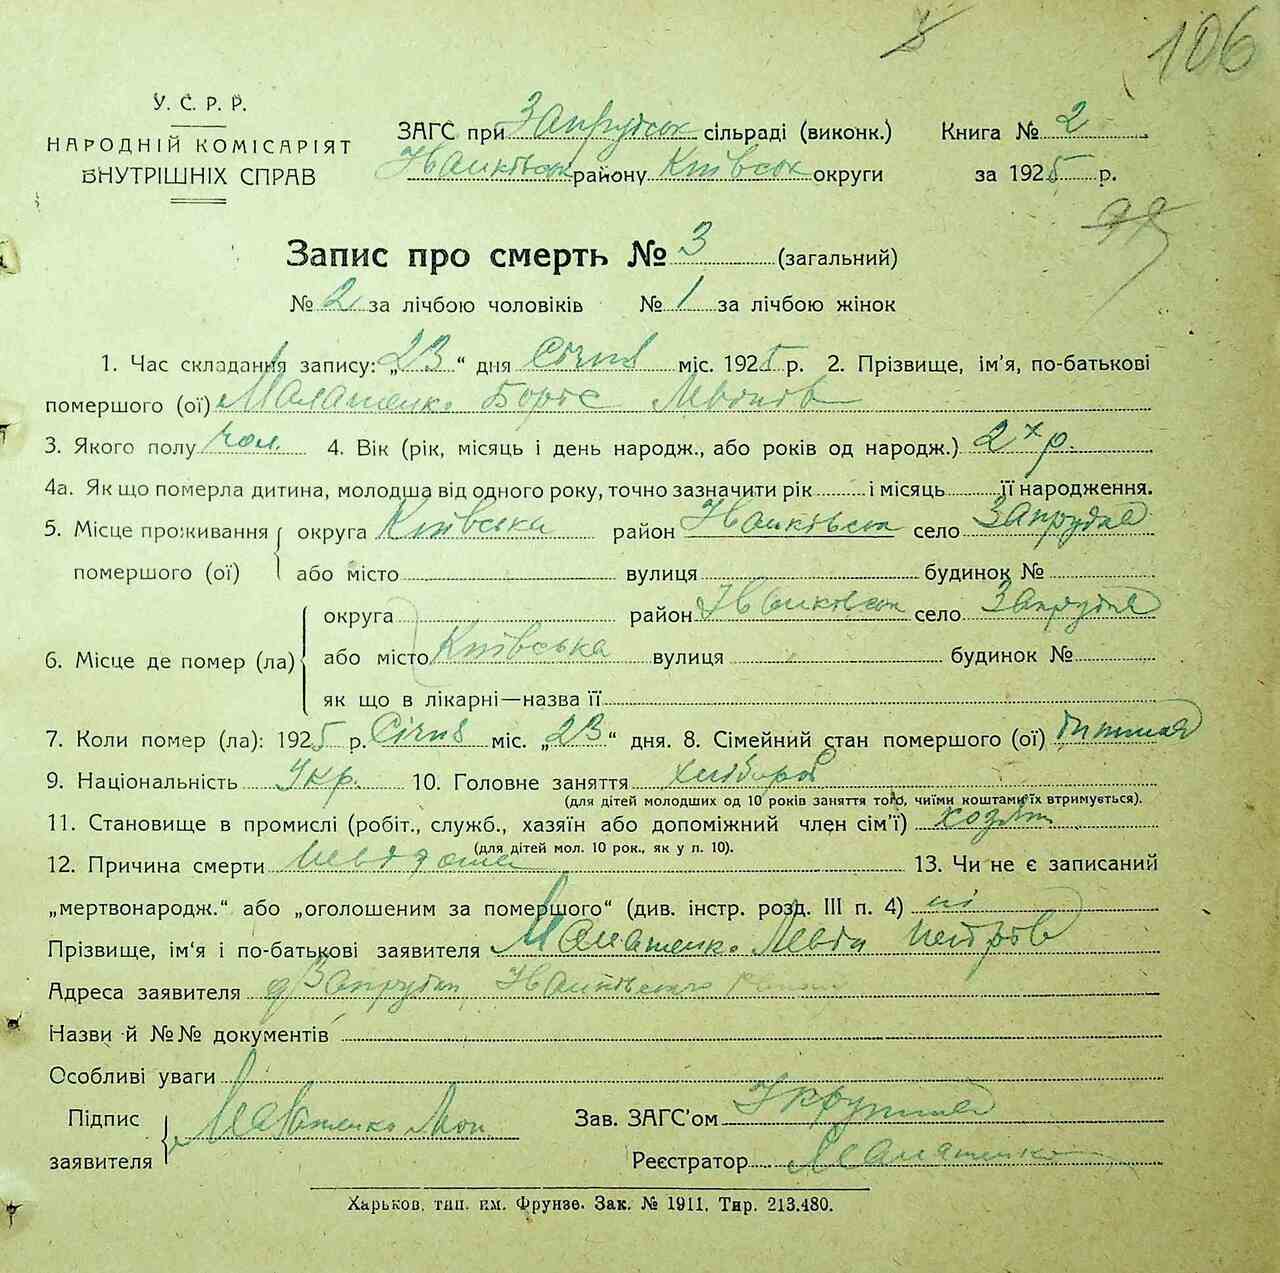 106
У. С. Р. Р.
НАРОДНІЙ КОМІСАРІЯТ
ВНУТРІШНІХ СПРАВ
ЗАГС при Запрудськ сільраді (виконк.) Книга № 2
Іванківськ району Київськ округи за 1925 р.
99
Запис про смерть № 3 (загальний)
№ 2 за лічбою чоловіків № 1 за лічбою жінок
1. Час складання запису: „23“ дня Січня міс. 1925 р. 2. Прізвище, ім'я, по-батькові
помершого (ої) Малашенко Борис
3. Якого полу чол. 4. Вік (рік, місяць і день народж., або років од народж.) 2х р.
4а. Як що померла дитина, молодша від одного року, точно зазначити рік і місяць її народження.
5. Місце проживання округа Київська район Іванківськ село Запрудка
помершого (ої) або місто вулиця будинок №
округа район Іванківськ село Запрудка
6. Місце де помер (ла) або місто Київська вулиця будинок №
як що в лікарні—назва її
7. Коли помер (ла): 1925 р. Січня міс. „23“ дня. 8. Сімейний стан помершого (ої)
9. Національність Укр. 10. Головне заняття хлібороб
(для дітей молодших од 10 років заняття того, чиїми коштами їх втримується).
11. Становище в промислі (робіт., служб., хазяїн або допоміжний член сім'ї)
(для дітей мол. 10 рок., як у п. 10).
12. Причина смерти невідома 13. Чи не є записаний
„мертвонародж.“ або „оголошеним за помершого“ (див. інстр. розд. III п. 4) ні
Прізвище, ім'я і по-батькові заявителя Малашенко Петров
Адреса заявителя д Запрудка Іванківського
Назви й №№ документів
Особливі уваги
Підпис
заявителя Малашенко
Зав. ЗАГС'ом
Реєстратор Малашенко
Харьков, тип. им. Фрунзе. Зак. № 1911. Тир. 213.480.